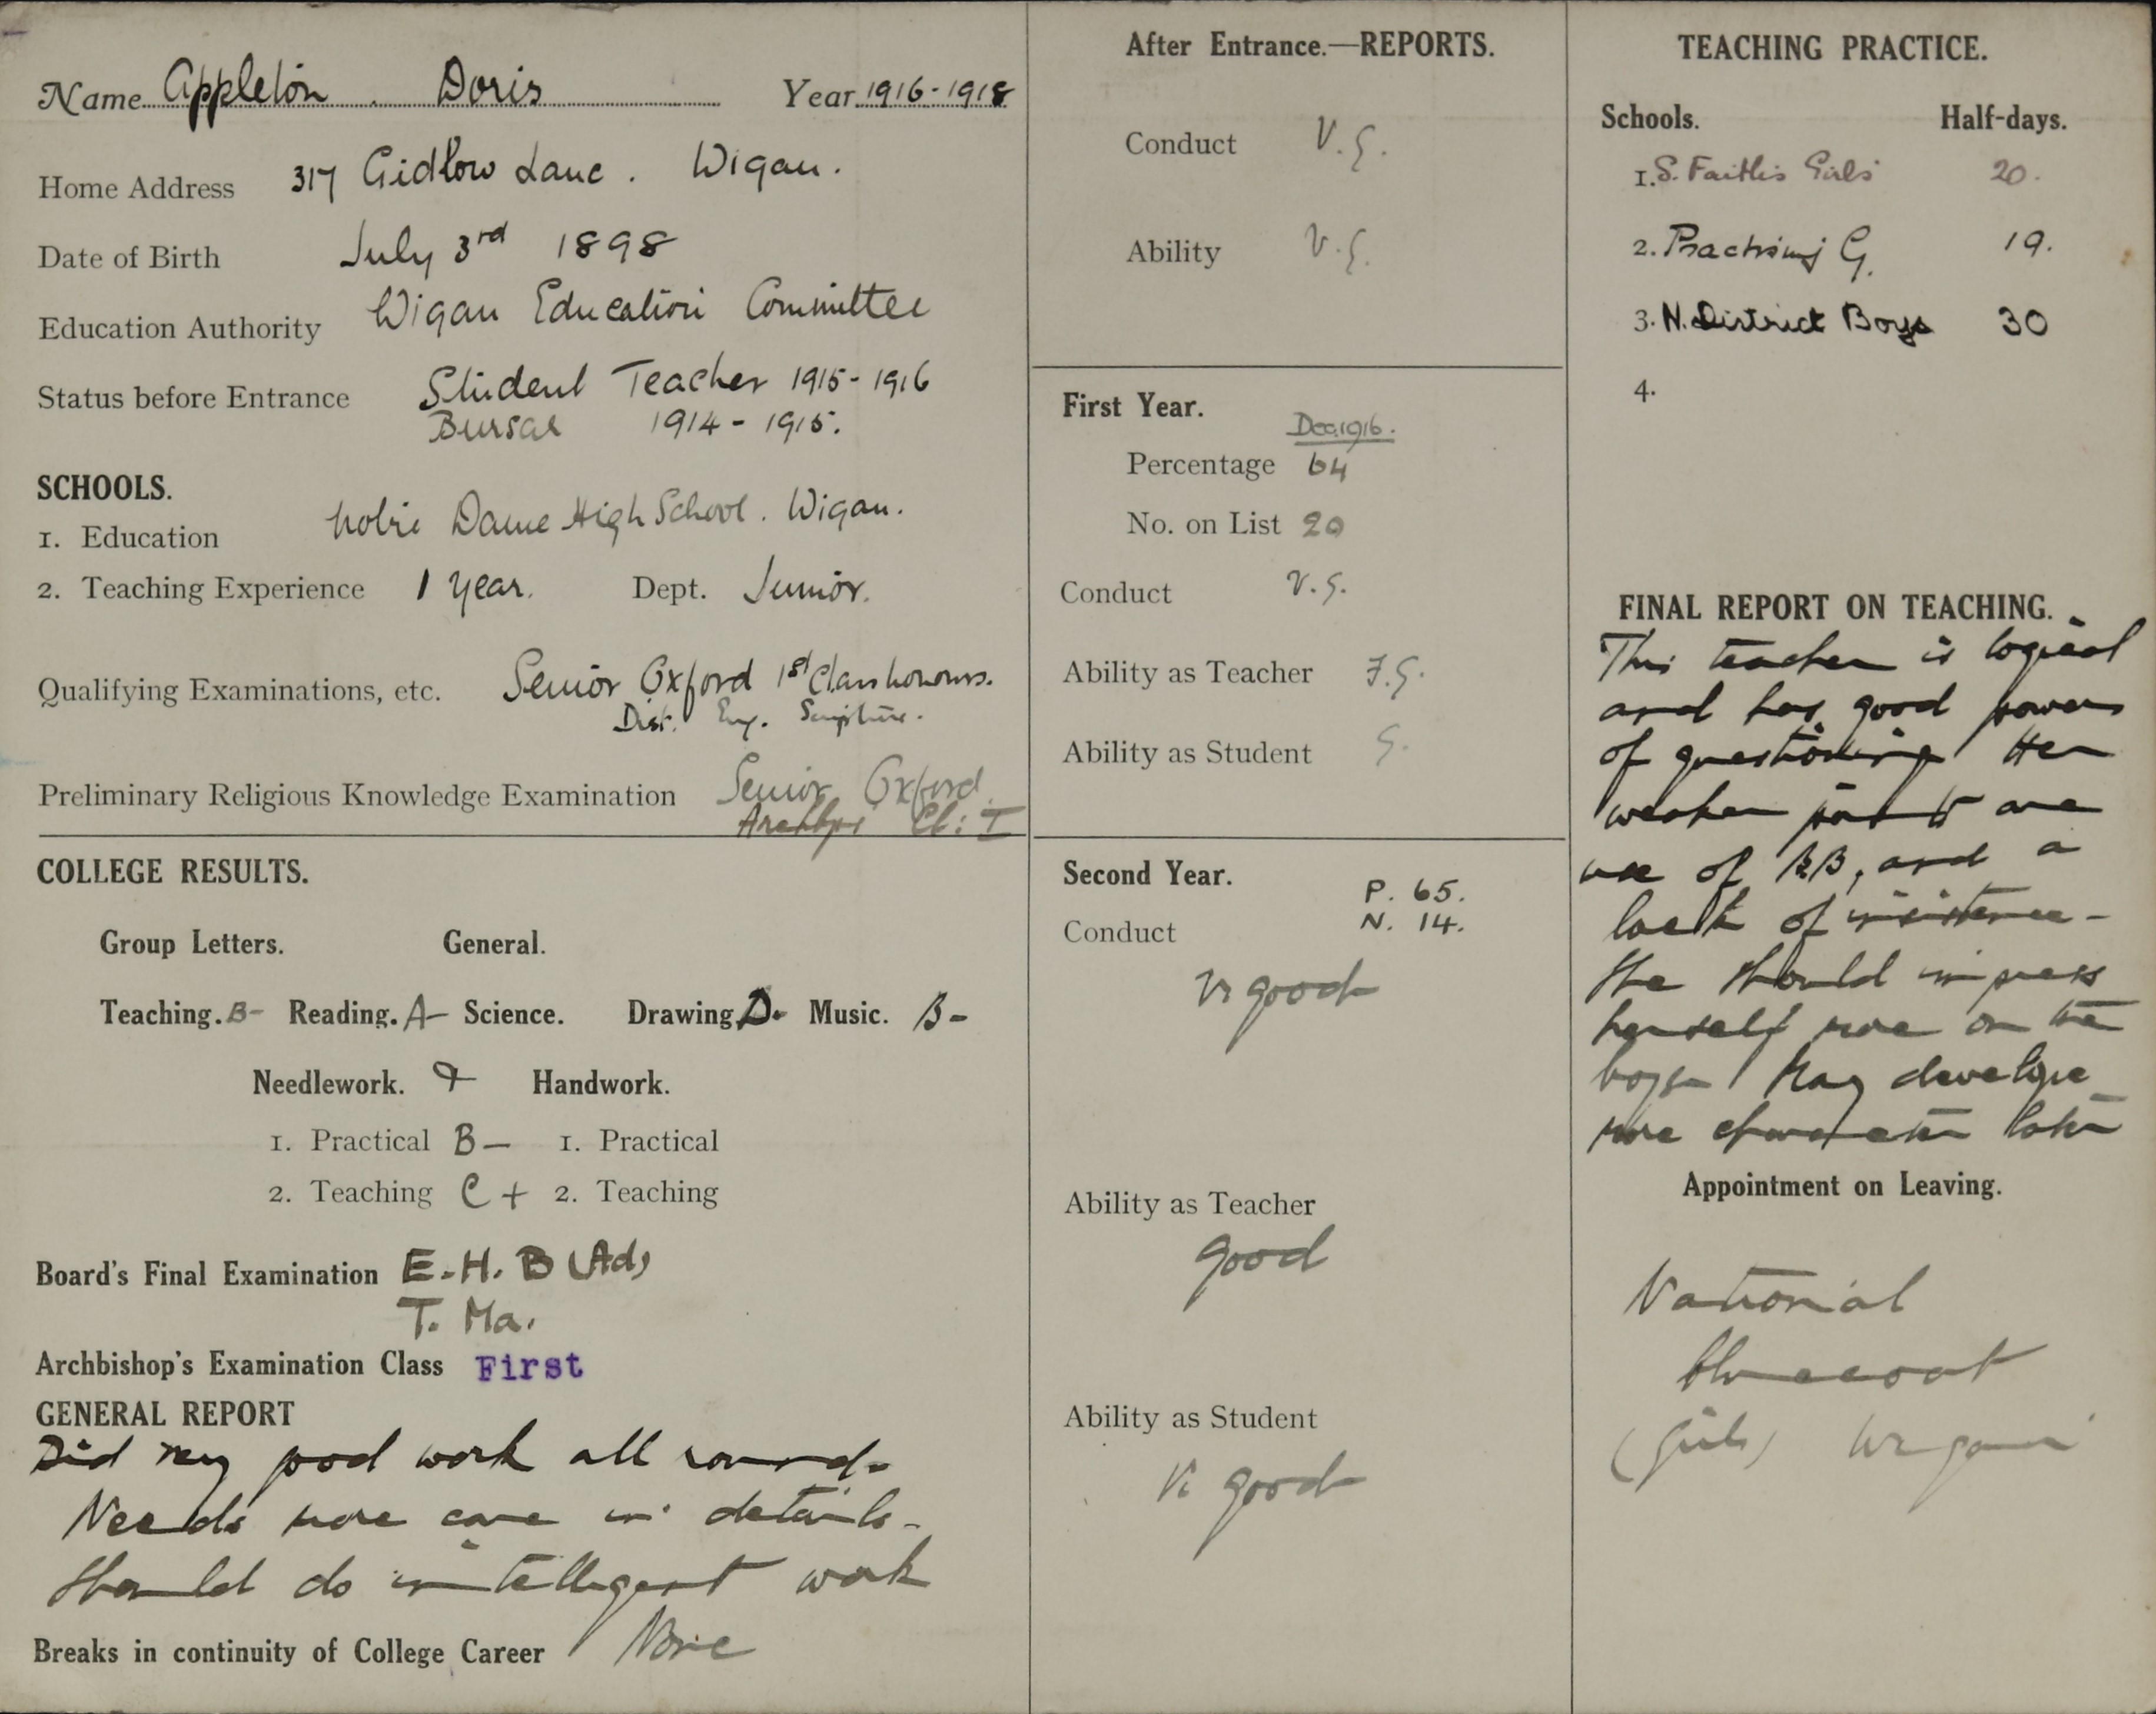 Name Appleton Doris Year 1916-1918
Home Address 317 Gidlow Lane. Wigan.
Date of Birth July 3rd 1898
Education Authority Wigan Education Committee
Status before Entrance Student Teacher 1915-1916
Bursar 1914-1915.
SCHOOLS.
1. Education Notre Dame High School. Wigan.
2. Teaching Experience 1 Year. Dept. Junior.
Qualifying Examinations, etc. Senior Oxford 1st Class honours.
Dist. Eng. Scripture.
Preliminary Religious Knowledge Examination Senior Oxford.
Archbps Cl: I
COLLEGE RESULTS.
Group Letters. General.
Teaching. B- Reading. A- Science. Drawing D. Music. B-
Needlework. & Handwork.
1. Practical B- 1. Practical
2. Teaching C+ 2. Teaching
Board's Final Examination E.H.B (Ad)
T. Ma.
Archbishop's Examination Class First
GENERAL REPORT
Did very good work all round.
Needs more care in details.
Should do intelligent work
Breaks in continuity of College Career None
After Entrance.—REPORTS.
Conduct V.G.
Ability V.G.
First Year.
Dec. 1916.
Percentage 64
No. on List 20
Conduct V.G.
Ability as Teacher F.G.
Ability as Student G.
Second Year. P. 65.
Conduct N. 14.
V. good
Ability as Teacher
good
Ability as Student
V. good
TEACHING PRACTICE.
Schools. Half-days.
1. S. Faith's Girls' 20.
2. Practising G. 19.
3. N. District Boys 30
4.
FINAL REPORT ON TEACHING.
This teacher is logical
and has good powers
of questioning. Her
weaker points are
use of BB, and a
lack of insistence -
She should impress
herself more on the
boys. May develope
more character later
Appointment on Leaving.
National
Bluecoat
(Girls) Wigan